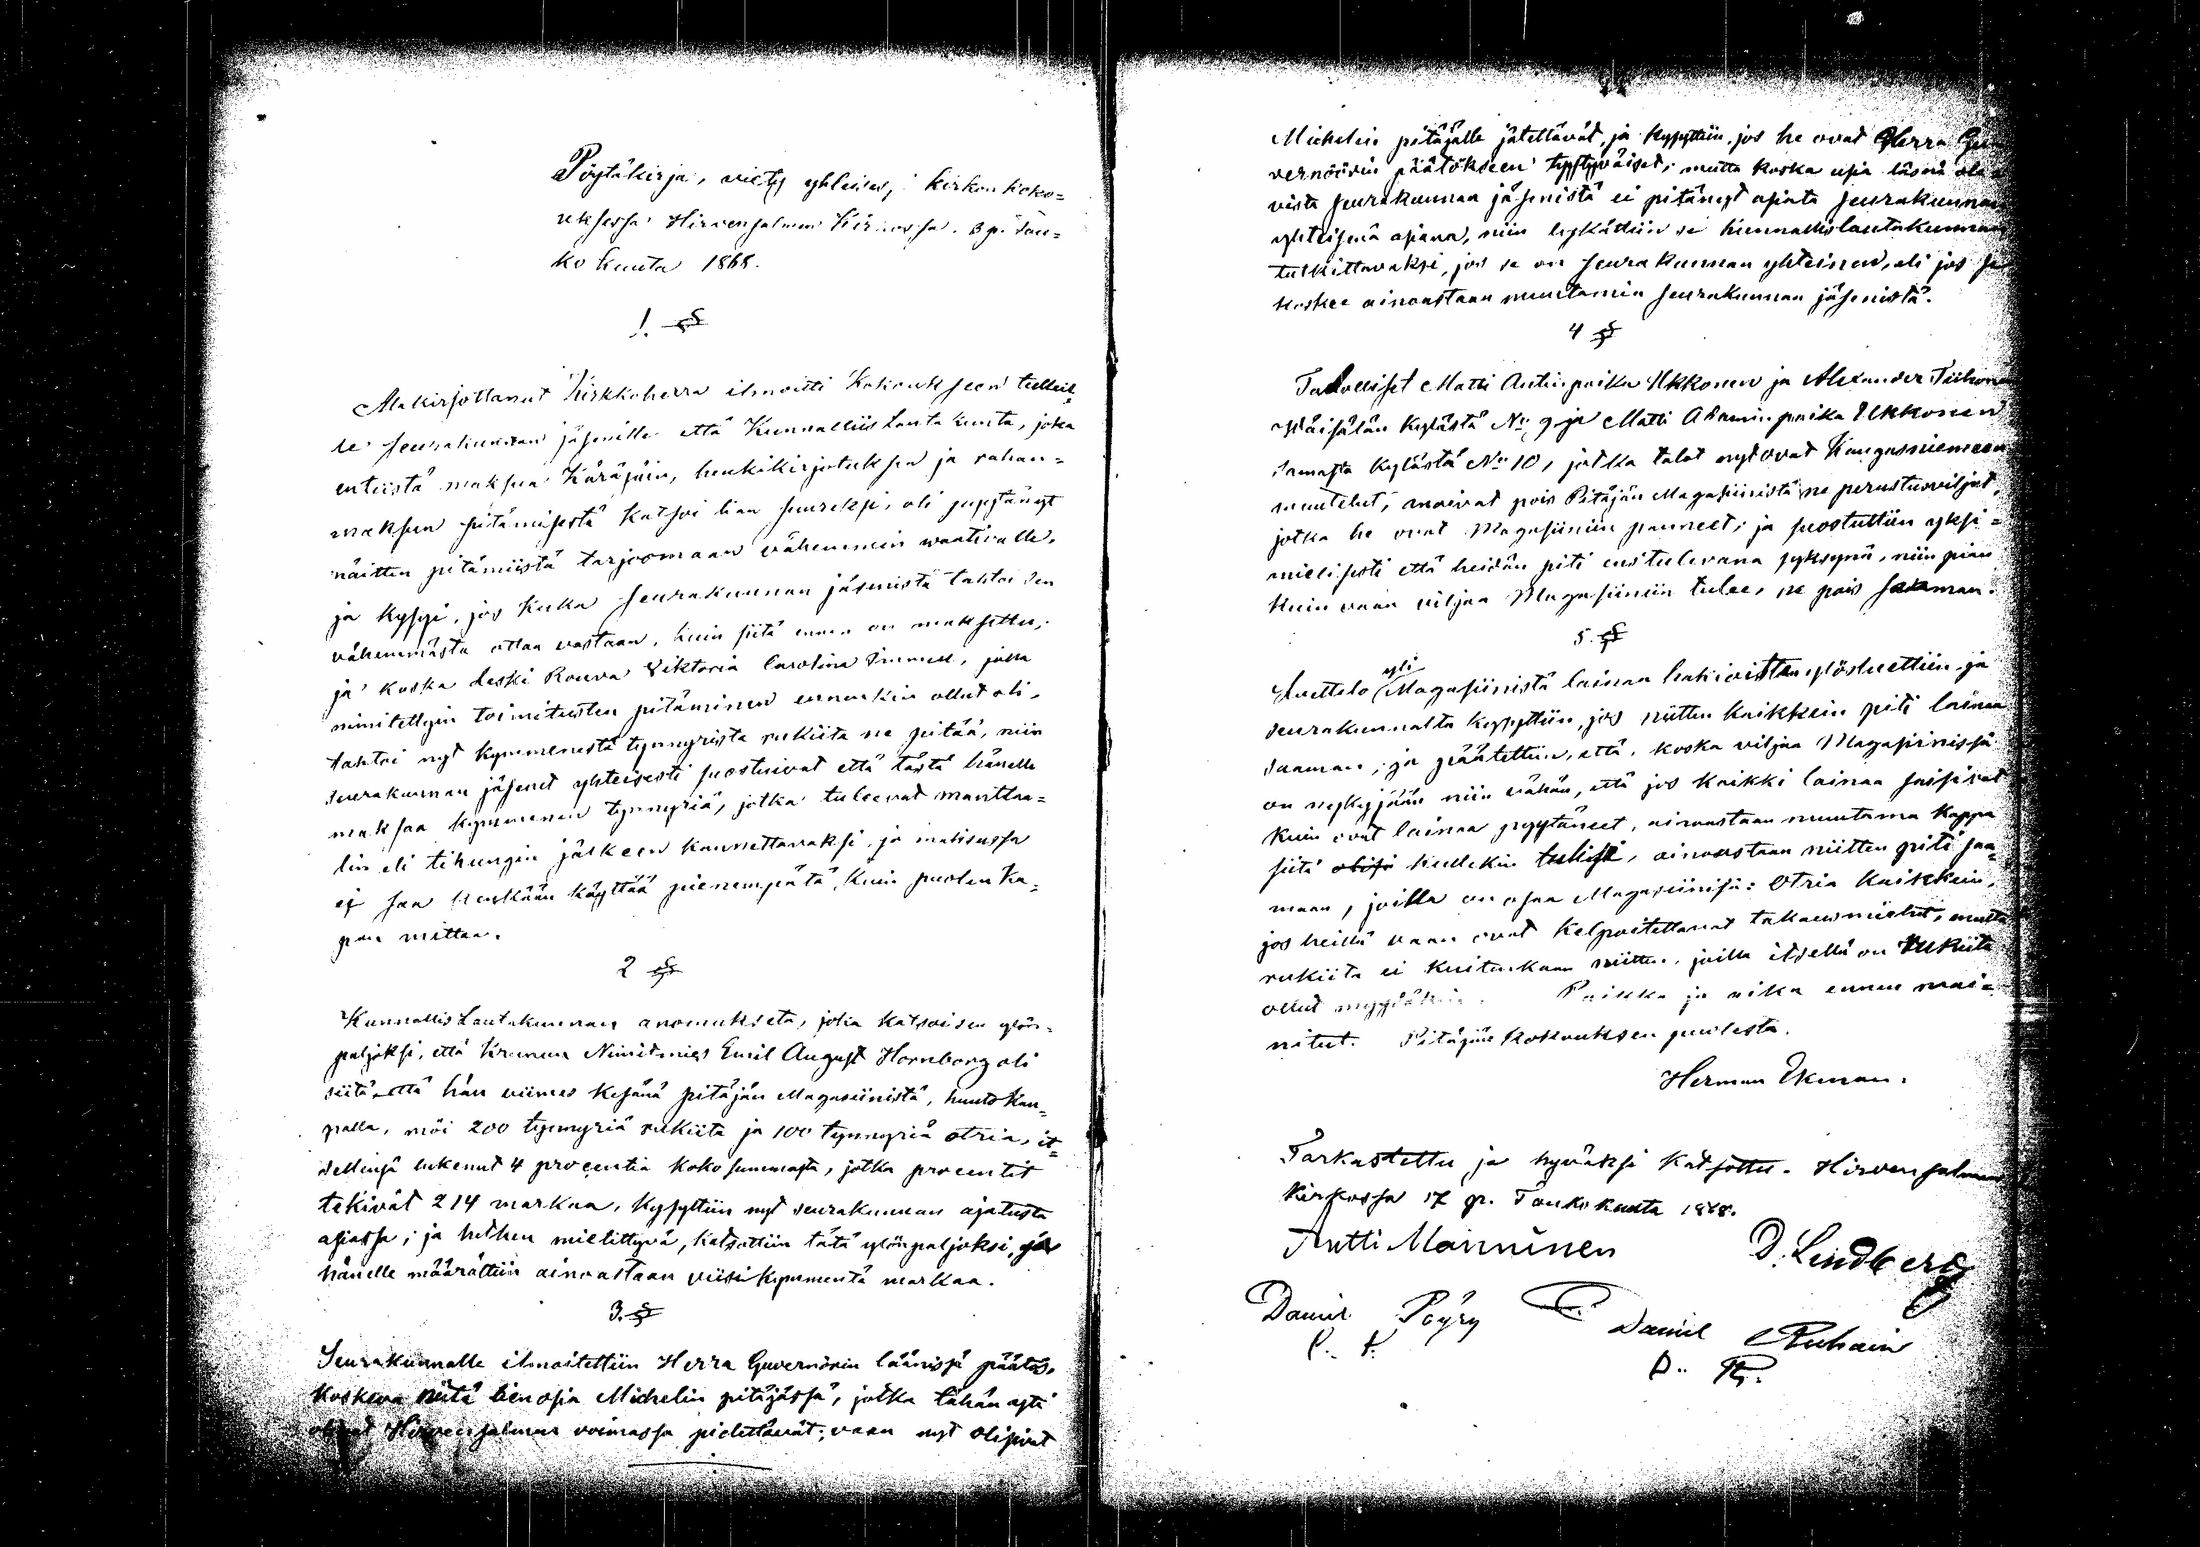 Pöytäkirja, pietty yhteises, kirkon koko-
uksessa Hirvensalmen Kirkossa. 3 p. Tou-
ko kuuta 1868.
1. §
Allakirjottanut Kirkkoherra ilmoitti Kokoukseen tulleil-
le seurakunnan jäsenille että Kunnallislautakunta, joka
entiistä maksua Käräjäin, henkikirjotuksen ja rahan-
maksun pitämisestä katsoi lian suureksi, oli
näitten pitämiistä tarjoomaan vähemmin vaativalle.
ja kysyi, jos kuka seurakunnan jäsenistä tahtoi sen
vähemmästä ottaa vastaan, kuin siitä ennen on maksettu;
ja koska Leski Rouva Viktoria Carolina, jolla
nimitettyin toimitusten pitäminen ennenkin ollut oli,
tahtoi nyt kymmenestä tynnyristä rukiita ne pitää, niin
seurakunnan jäsenet yhteisesti suostuivat että tästä hänelle
maksaa kymmenen tynnyriä, jotka tulevat manttaa-
lin eli tihungin jälkeen kannettavaksi, ja
ei saa kenkään käyttää pienempätä, kuin puolen ka-
pan mittaa.
2 §
Kunnallis Lautakunnan anomuksesta, joka katsoi sen ylön-
paljoksi, että Kruunun Nimismies Emil August Hornborg oli
siitä että hän viimes kesänä pitäjän Magasiinistä, huutokau-
palla, möi 200 tynnyriä rukiita ja 100 tynnyriä otria, it-
sellensä lukenut 4 procentia koko summasta, jotka procentit
tekivät 214 markaa, kysyttiin nyt seurakunnan ajatusta
asiassa; ja hethen mielittyvä, katsottiin tätä ylönpaljoksi, ja
hänelle määrättiin ainoastaan viisikymmentä markaa.
3. §
Seurakunnalle ilmoitettiin Herra Guvernörin läänissä päätös,
koskeva niitä tien osia Michelin pitäjässä, jotka tähän asti
olivat Hirvensalmen voimassa pidettävät; vaan nyt olisivat
Michelin pitäjälle jätettävät, ja kysyttiin, jos he ovat Herra Gu-
vernöörin päätökseen tyytyväiset; mutta koska usia läsnä ole-
vista seurakunnan jäsenistä ei pitänyt asiata seurakunnan
yhteisenä asiana, niin lykättiin se kunnallislautakunnan
tutkittavaksi, jos se on seurakunnan yhteinen, eli jos se
koskee ainoastaan muutamia seurakunnan jäsenistä.
4 §
Talolliset Matti Antinpoika Ukkonen ja Alexander Tiihonen
Väisälän kylästä No 9 ja Matti Adaminpoika Ukkonen
samasta kylästä No 10, jotka talot nyt ovat Kangasniemeen
muutetut, pois Pitäjän Magasiinistä ne perustusviljat,
jotka he ovat Magasiiniin panneet; ja suostuttiin yksi-
mielisesti että heidän piti ens tulevana syksynä, niin pian
kuin vaan viljaa Magasiiniin tulee, ne pois saaman.
5. §
Luettelo yli Magasiinistä lainaa hakivoittan ylösluettiin ja
seurakunnalta kysyttiin, jos niitten kaikkein piti lainaa
saaman; ja päätettiin, että, koska viljaa Magasiinissa
on niin vähän, että jos kaikki lainaa saisivat
kuin ovat lainaa pyytäneet, ainoastaan muutama kappa
siitä olisi kullekin tulisi, ainoastaan niitten piti saa-
maan, joilla on osaa Magasiinissa: Otria kaikkein,
jos heillä vaan ovat kelpoitettavat takausmiehet, mutta
rukiita ei kuitenkaan niitten, joilla itsellä on rukiita
ollut. Paikka ja aika ennen mai-
nitut. Pitäjän kokouksen puolesta.
Herman Ekman.
Tarkastettu ja hyväksi katsottu. Hirvensalmen
kirkossa 17 p. Toukokuuta 1868.
Antti Manninen D. Lindberg
Daniel Pöyry Daniel